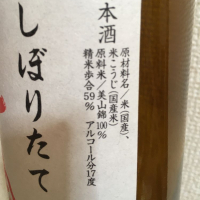 本酒
しぼりたて
原材料名/米(国産)、
米こうじ(国産米)
原料米/美山錦100%
精米歩合59% アルコール分17度